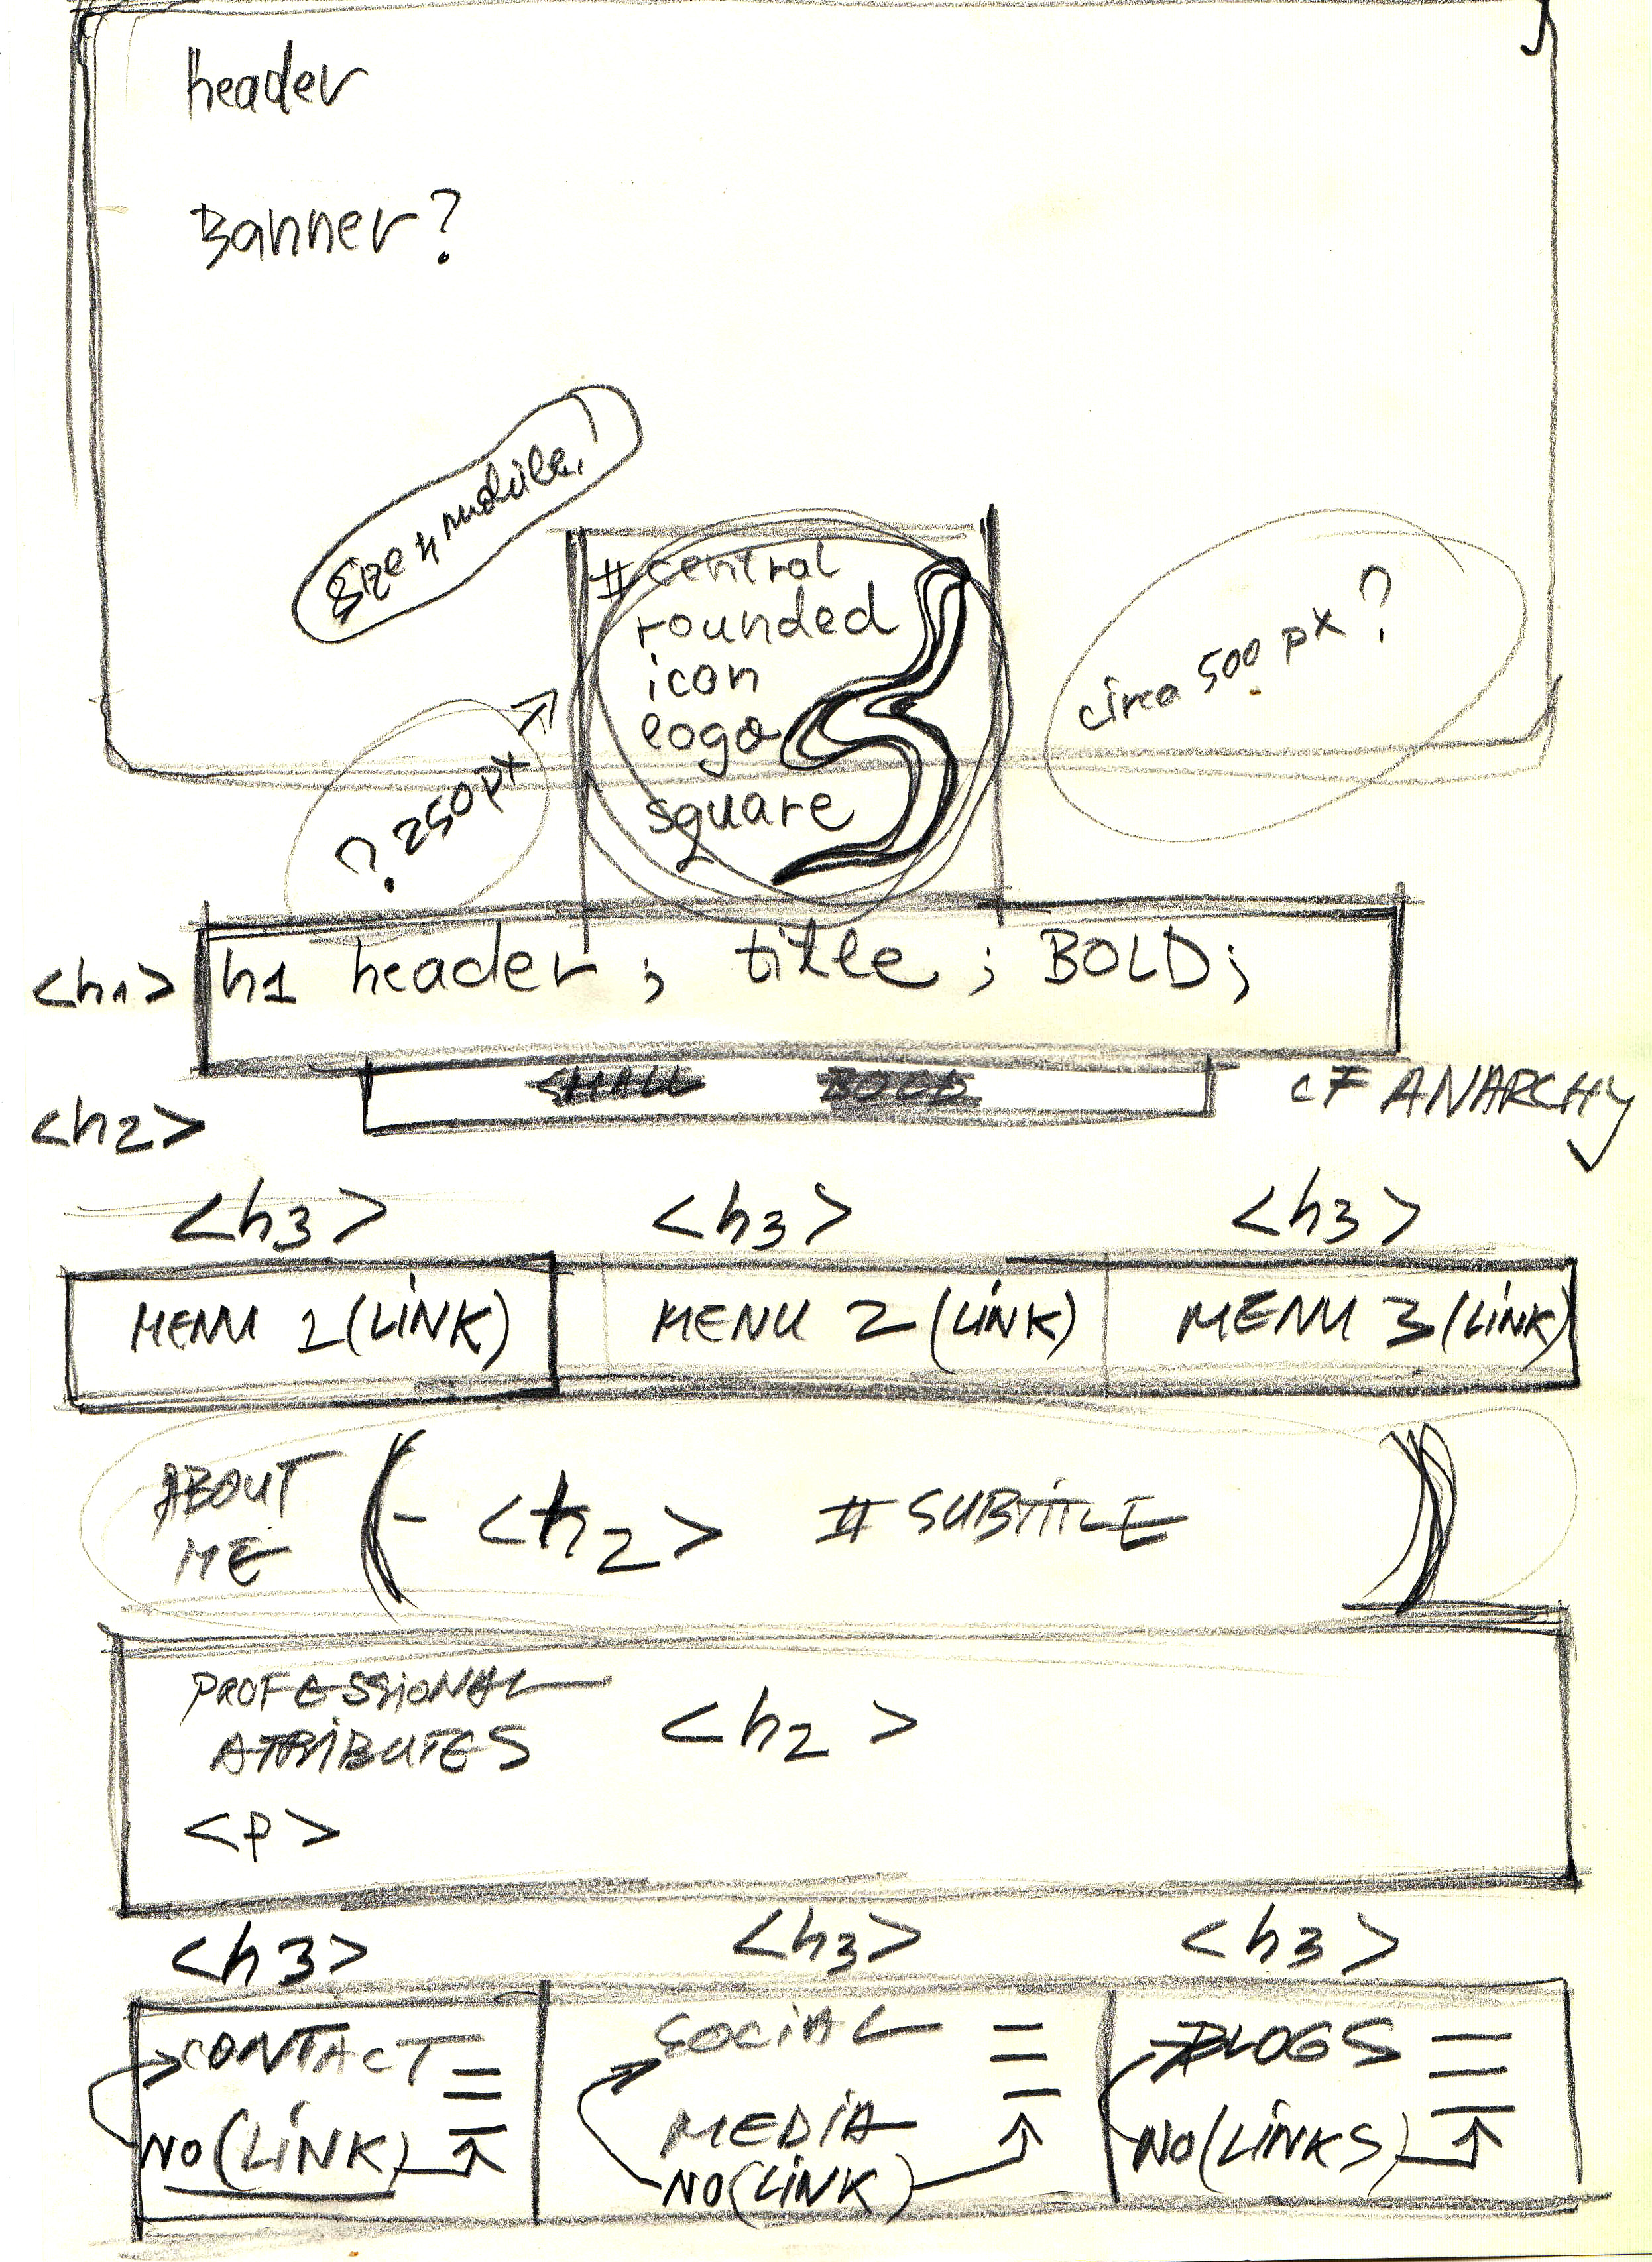 header
Banner?
# central
rounded
icon
logo
square
circa 500 px ?
? 250px
<h1> h1 header ; title ; BOLD;
<h2> SMALL BOLD CF ANARCHY
<h3> <h3> <h3>
MENU 1 (LiNK) MENU 2 (LiNK) MENU 3 (LiNK)
ABOUT
ME
<h2> # SUBTiTLE
PROFESSiONAL
ATRiBUTES
<h2>
<P>
<h3> <h3> <h3>
CONTACT SOCiAL BLOGS
MEDiA
NO(LiNK) NO(LiNK) NO(LiNKS)